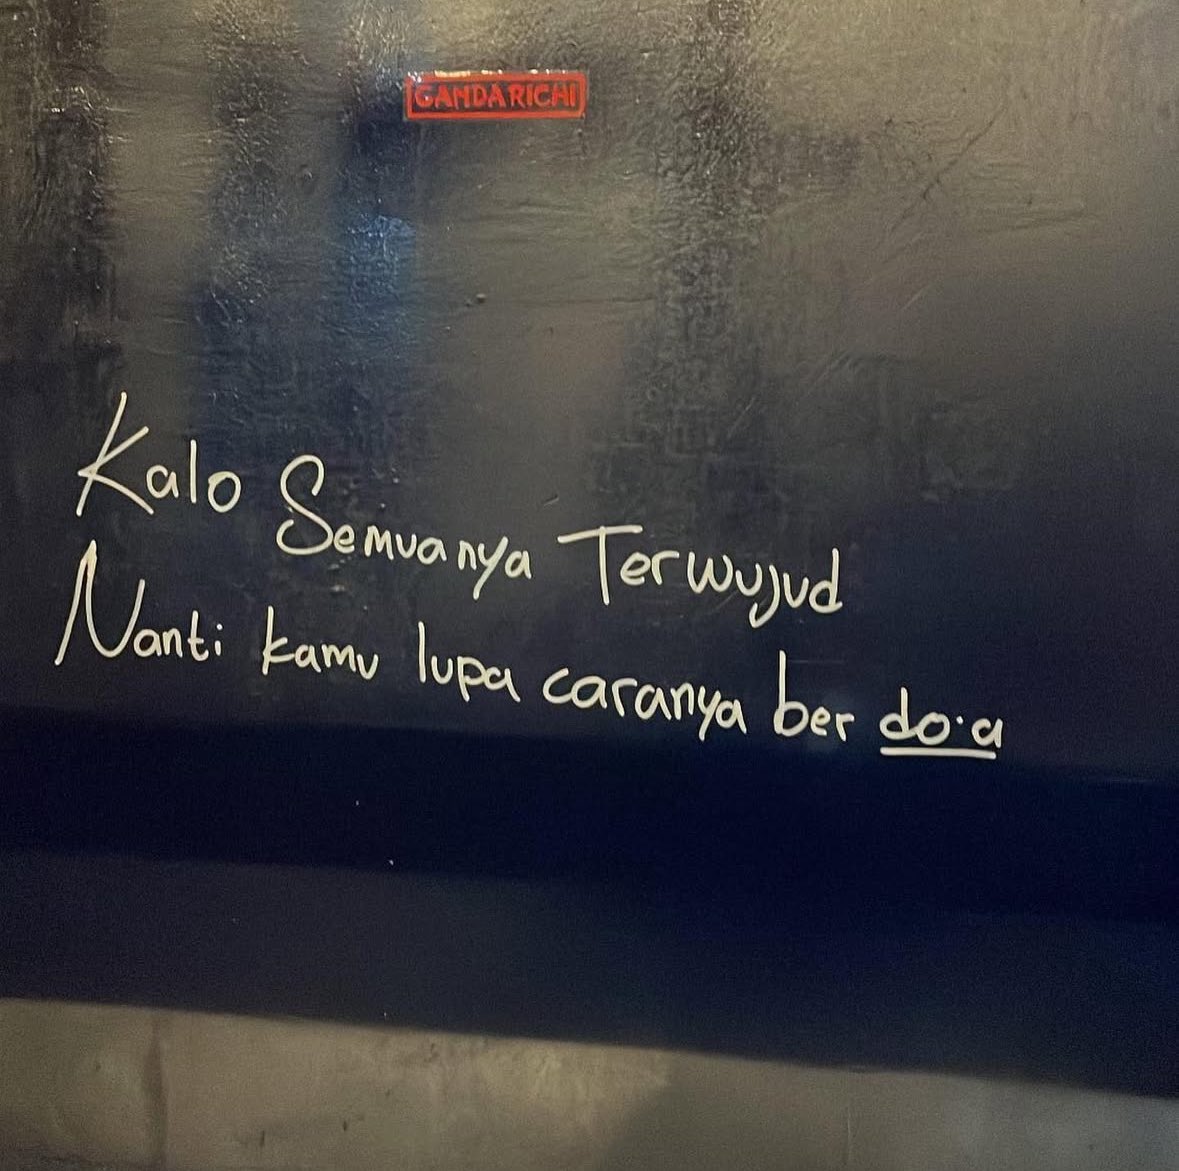 GANDARICHI
Kalo Semuanya Terwujud
Nanti kamu lupa caranya ber do·a